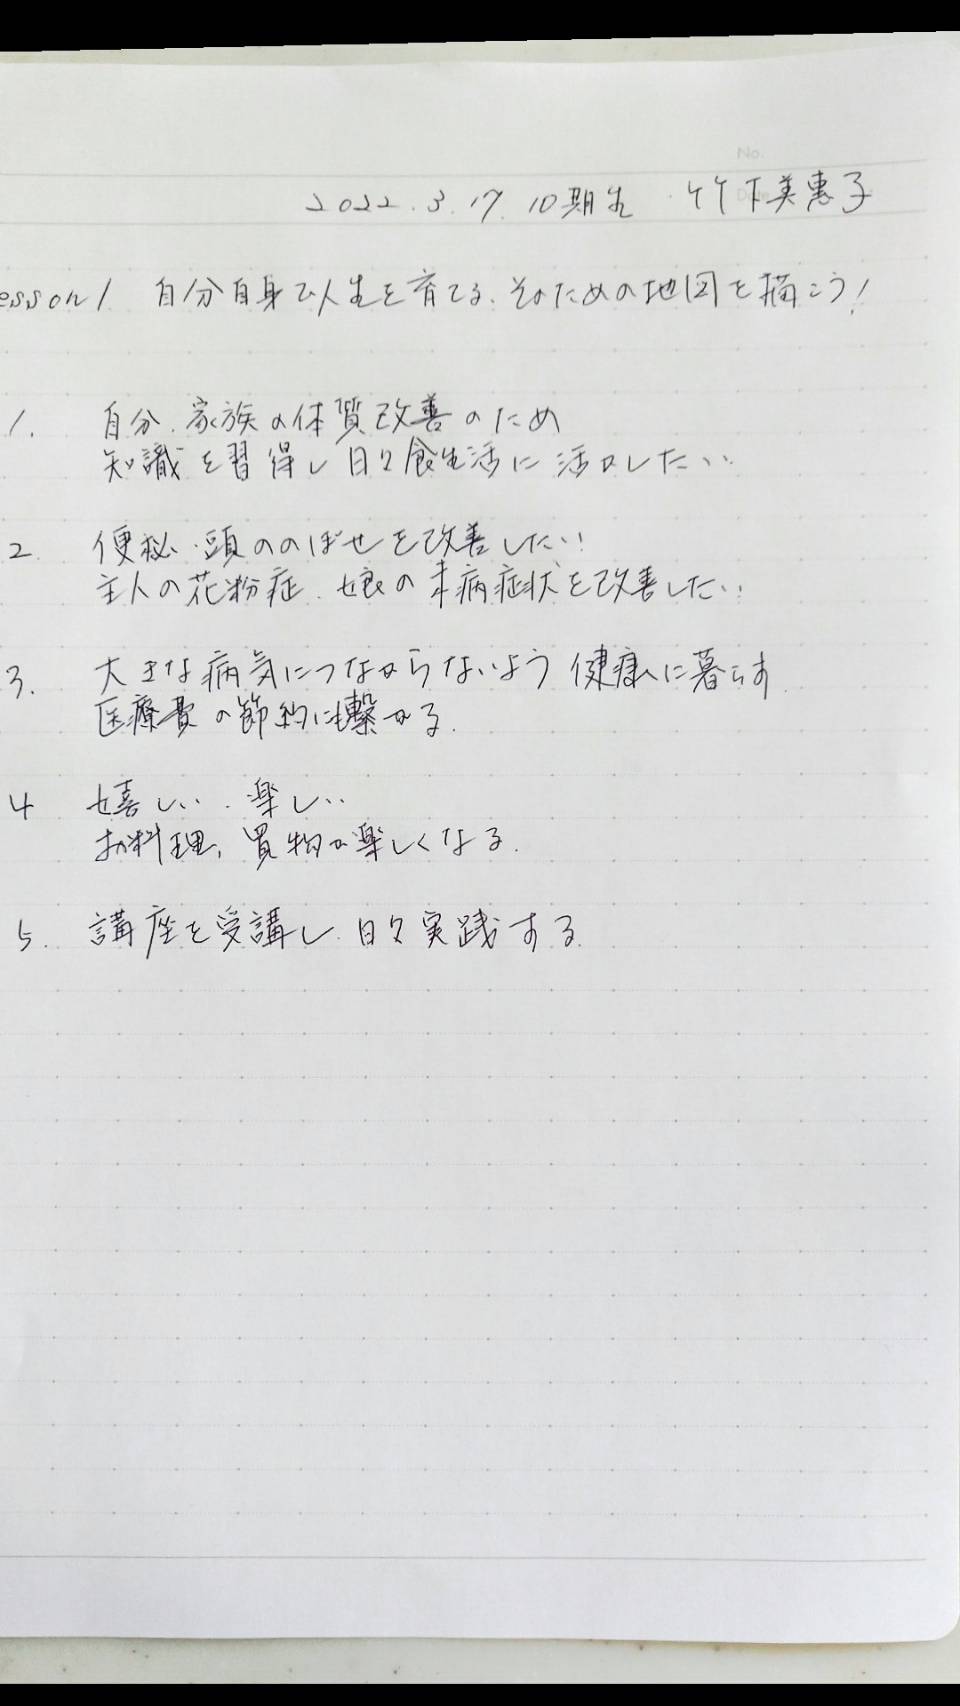 No.
Date
2022.3.17 10期生 竹下美恵子
esson1 自分自身で人生を育てる、そのための地図を描こう!
1. 自分、家族の体質改善のため
知識を習得し日々食生活に活かしたい
2. 便秘・頭ののぼせを改善したい
主人の花粉症、娘の未病症状を改善したい
3. 大きな病気につながらないよう健康に暮らす
医療費の節約にも繋がる.
4 嬉しい、楽しい
お料理、買物が楽しくなる.
5. 講座を受講し、日々実践する